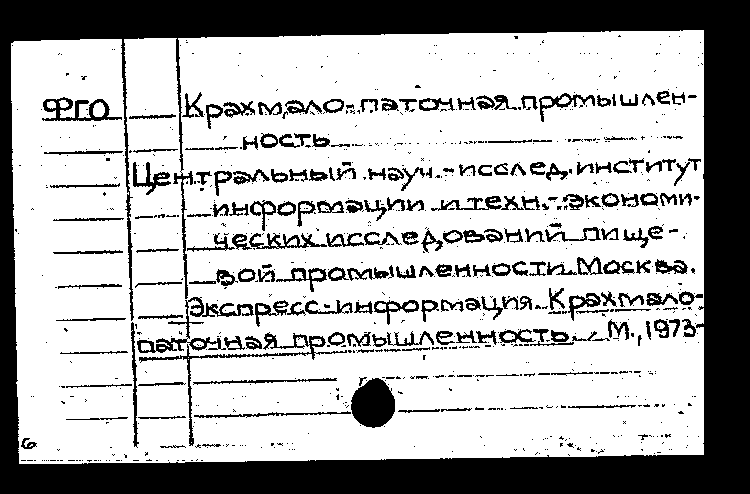 ФГО Крахмало-паточная промышлен-
ность
Центральный науч.-исслед. институт
информации и техн.-экономи-
ческих исследований пище-
вой промышленности. Москва.
Экспресс-информация. Крахмало-
паточная промышленность. М., 1973-
6